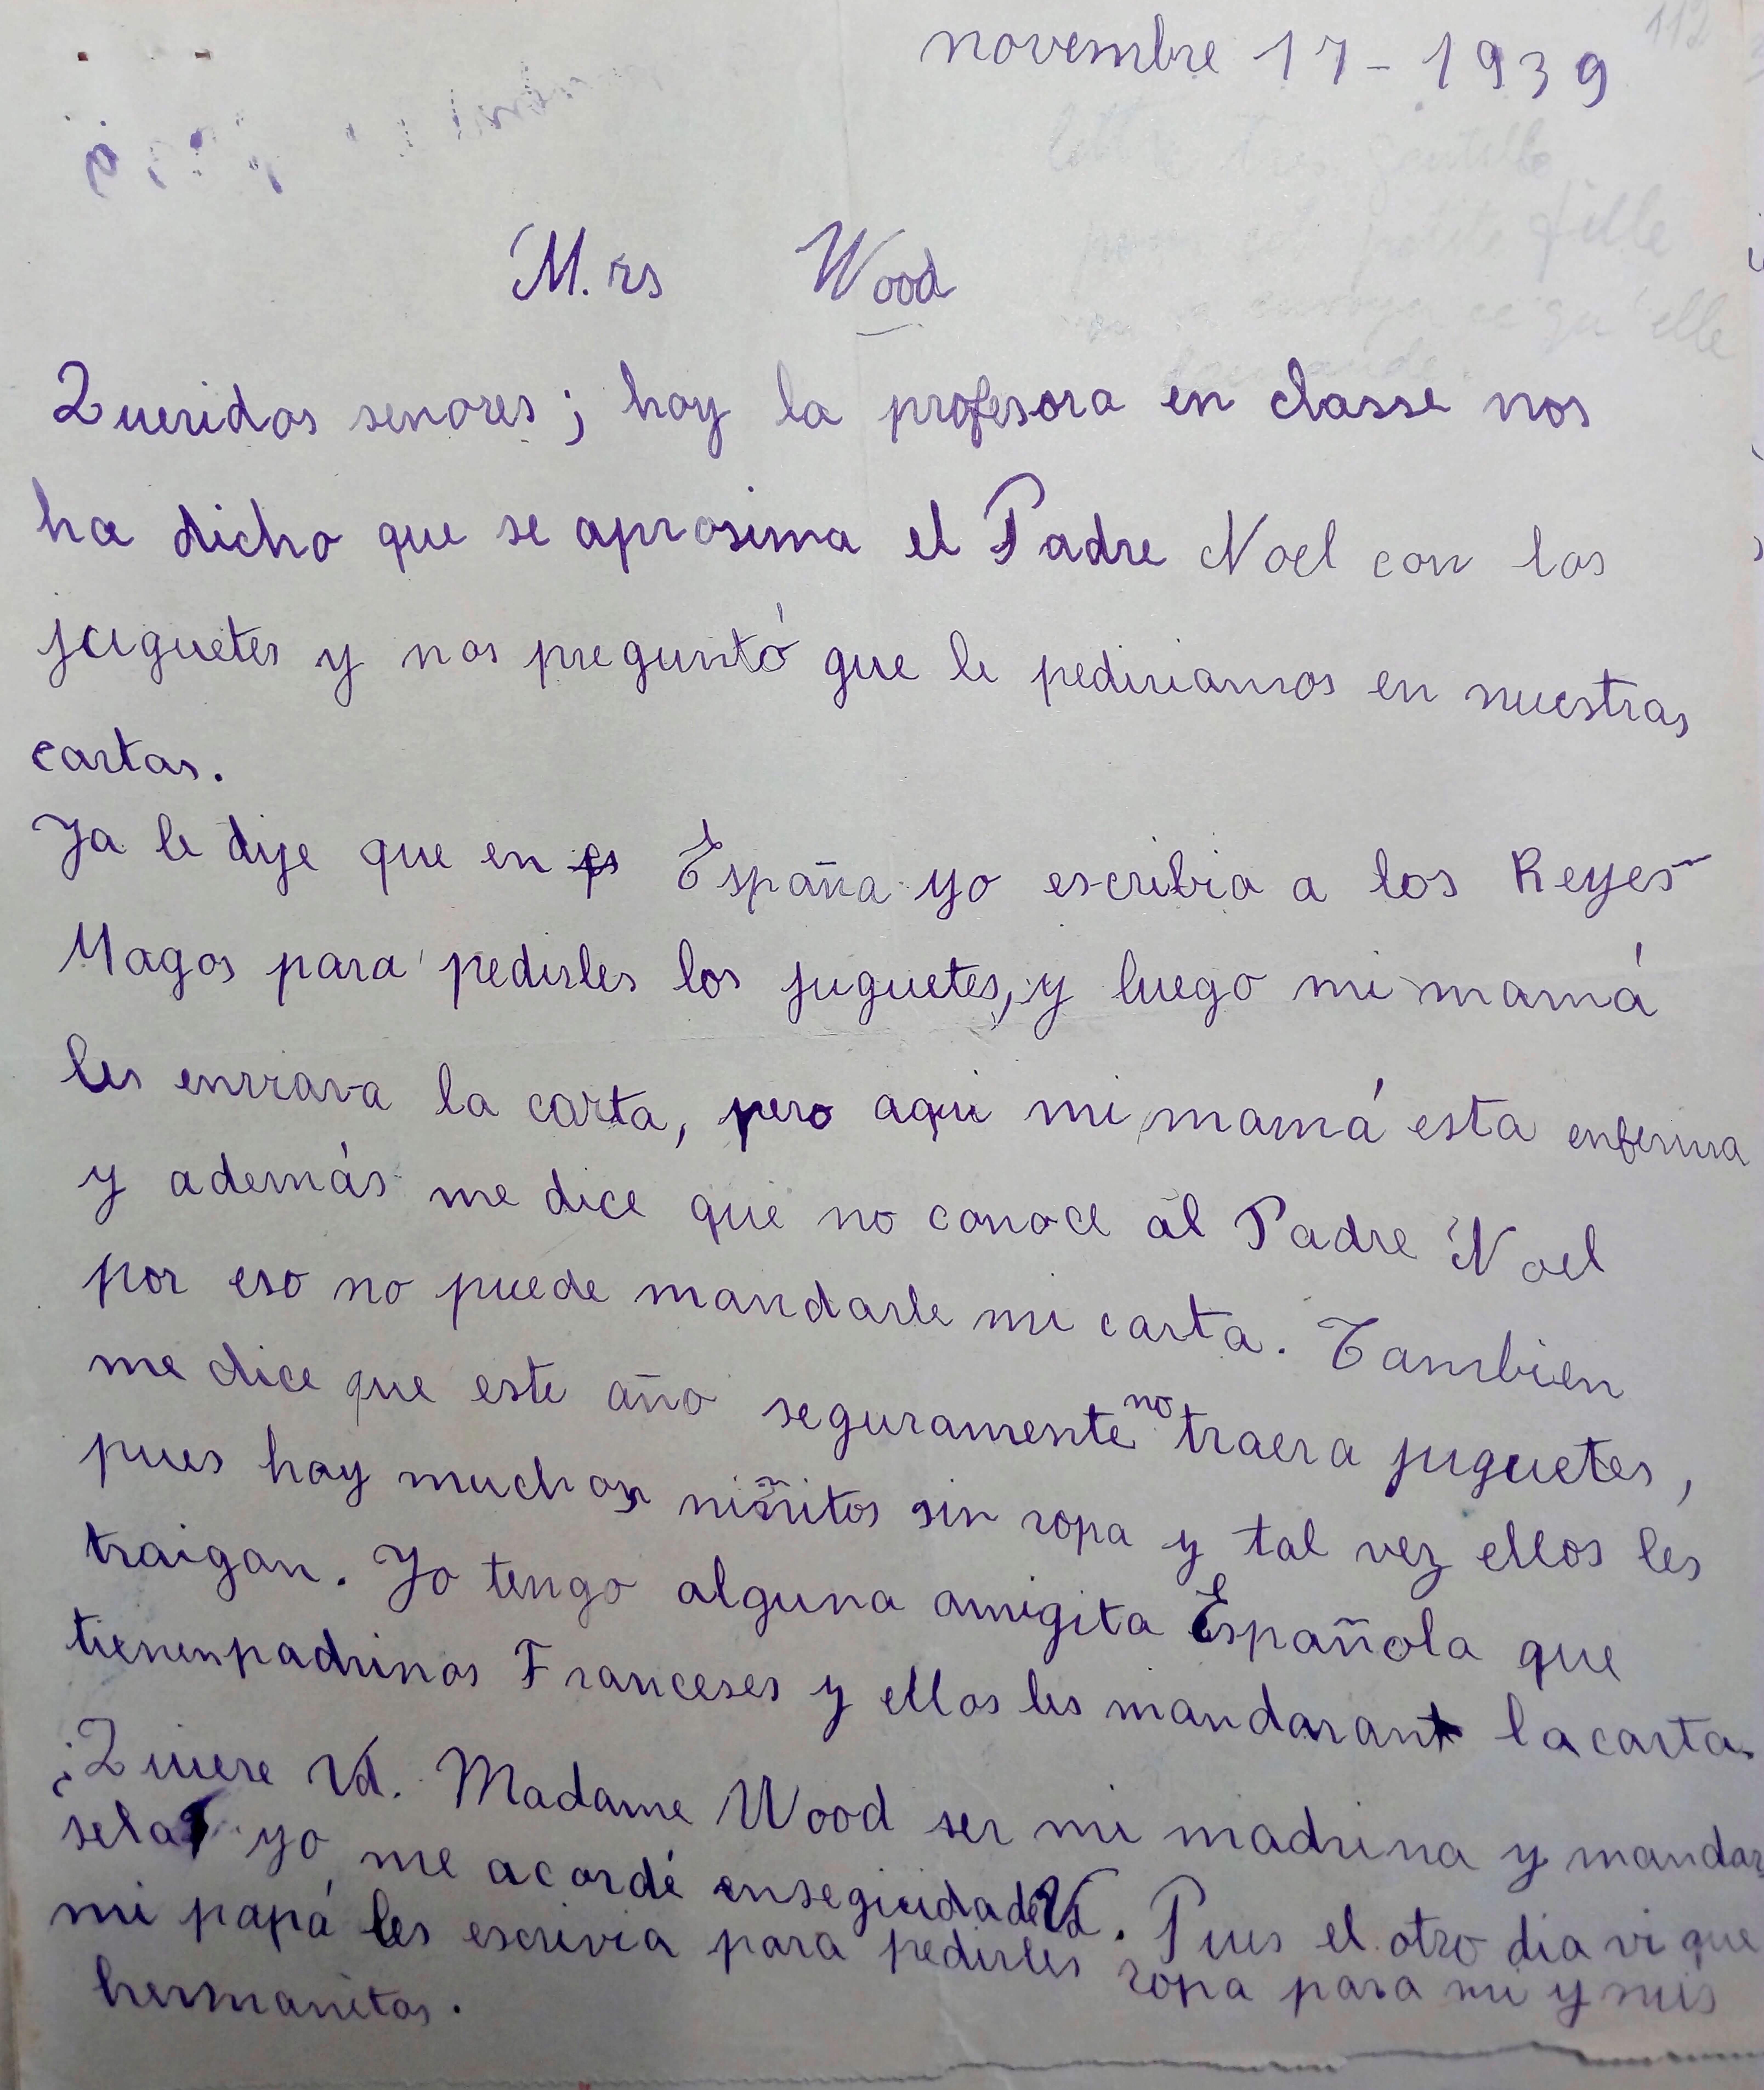 112
novembre 17 - 1939
lettre tres gentille
petite fille
envoyer ce qu'elle
demande.
M.rs Wood
Queridos senores; hoy la profesora en classe nos
ha dicho que se aprosima el Padre Noel con los
juguetes y nos preguntó que le pediriamos en nuestras
cartas.
Ya le dije que en es España yo escribia a los Reyes
Magos para pedirles los juguetes, y luego mi mamá
les enviava la carta, pero aqui mi mamá esta enferma
y además me dice que no conoce al Padre Noel
por eso no puede mandarle mi carta. Tambien
me dice que este año seguramente no traera juguetes,
pues hay muchos niñitos sin ropa y tal vez ellos les
traigan. Yo tengo alguna amigita Española que
tienen padrinos Franceses y ellos les mandaran la carta.
¿Quiere Vd. Madame Wood ser mi madrina y mandar
sela? yo me acordé enseguida de Vd. Pues el otro dia vi que
mi papá les escrivia para pedirles ropa para mi y mis
hermanitos.